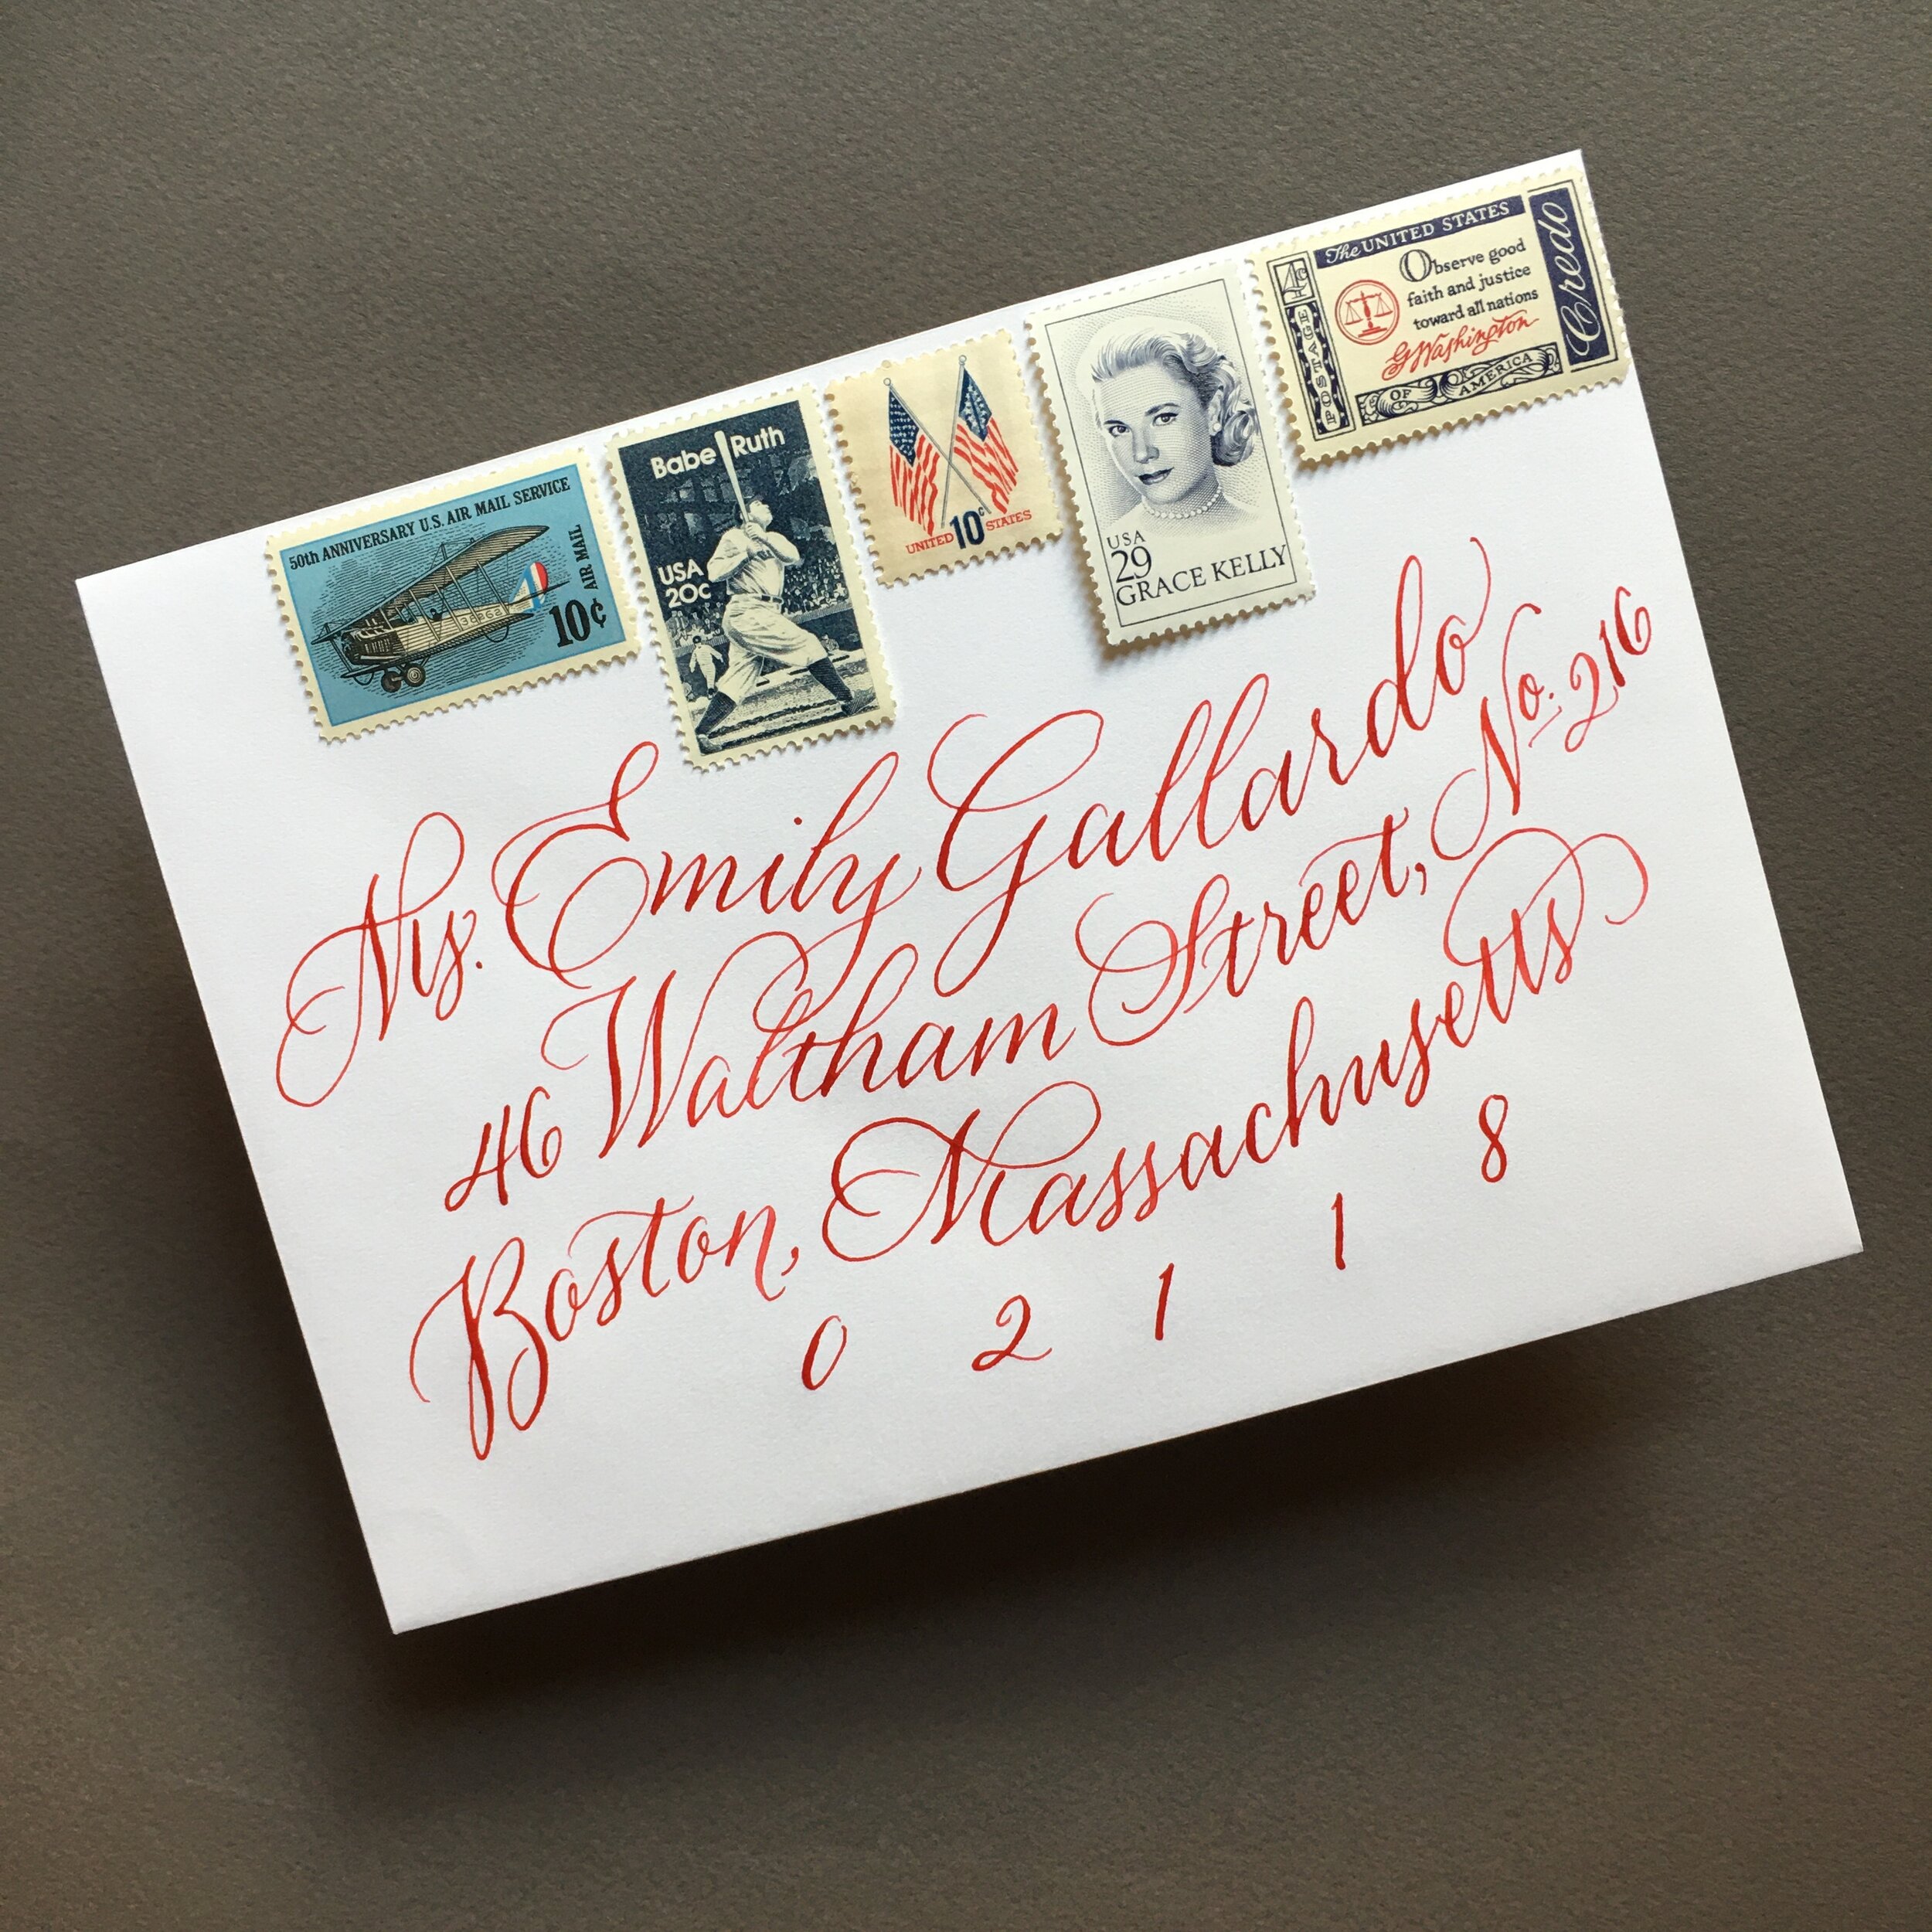 50th ANNIVERSARY U.S. AIR MAIL SERVICE
AIR MAIL
10¢
38262
Babe Ruth
USA
20c
UNITED 10c STATES
USA
29
GRACE KELLY
The UNITED STATES
4c
POSTAGE
Observe good
faith and justice
toward all nations
GWashington
OF AMERICA
Credo
Ms. Emily Gallardo
46 Waltham Street, No. 216
Boston, Massachusetts
0 2 1 1 8